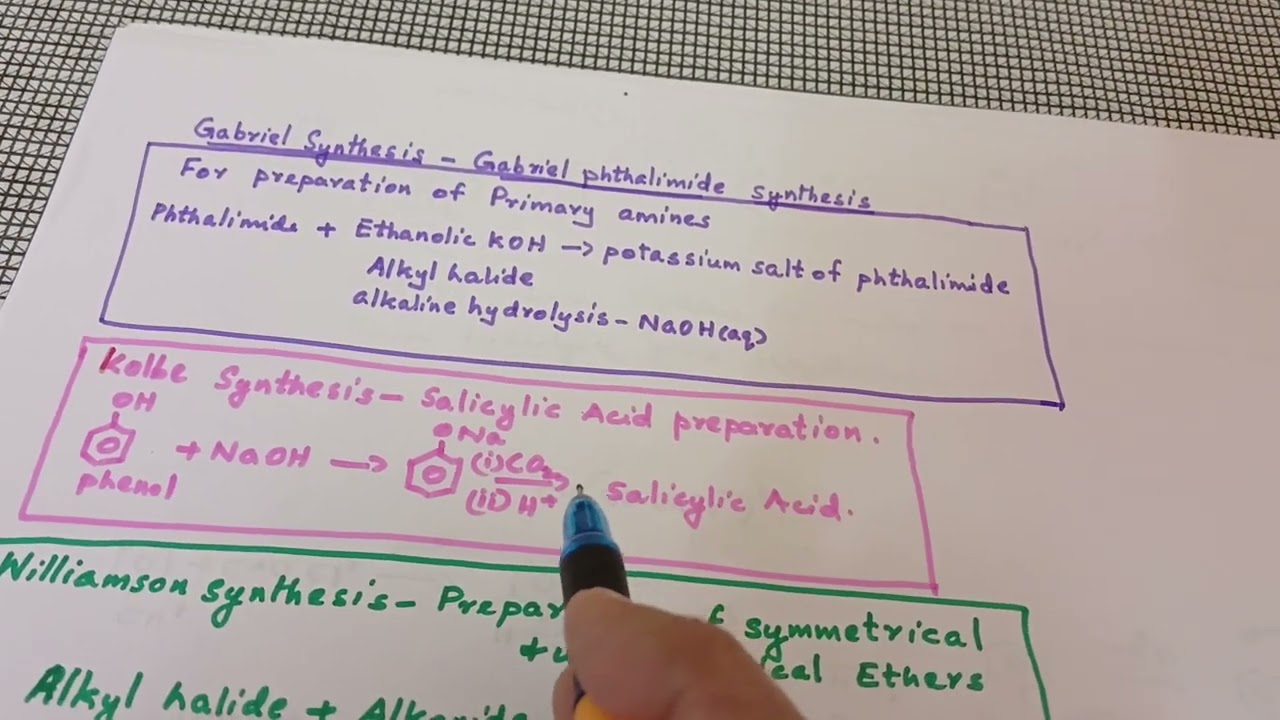 Gabriel Synthesis - Gabriel phthalimide synthesis
For preparation of Primary amines
Phthalimide + Ethanolic KOH → potassium salt of phthalimide
Alkyl halide
alkaline hydrolysis - NaOH(aq)
Kolbe Synthesis - Salicylic Acid preparation.
OH
ONa
+ NaOH → (i) CO2
(ii) H+
Salicylic Acid.
phenol
Williamson synthesis - Prepar symmetrical
Ethers
Alkyl halide +